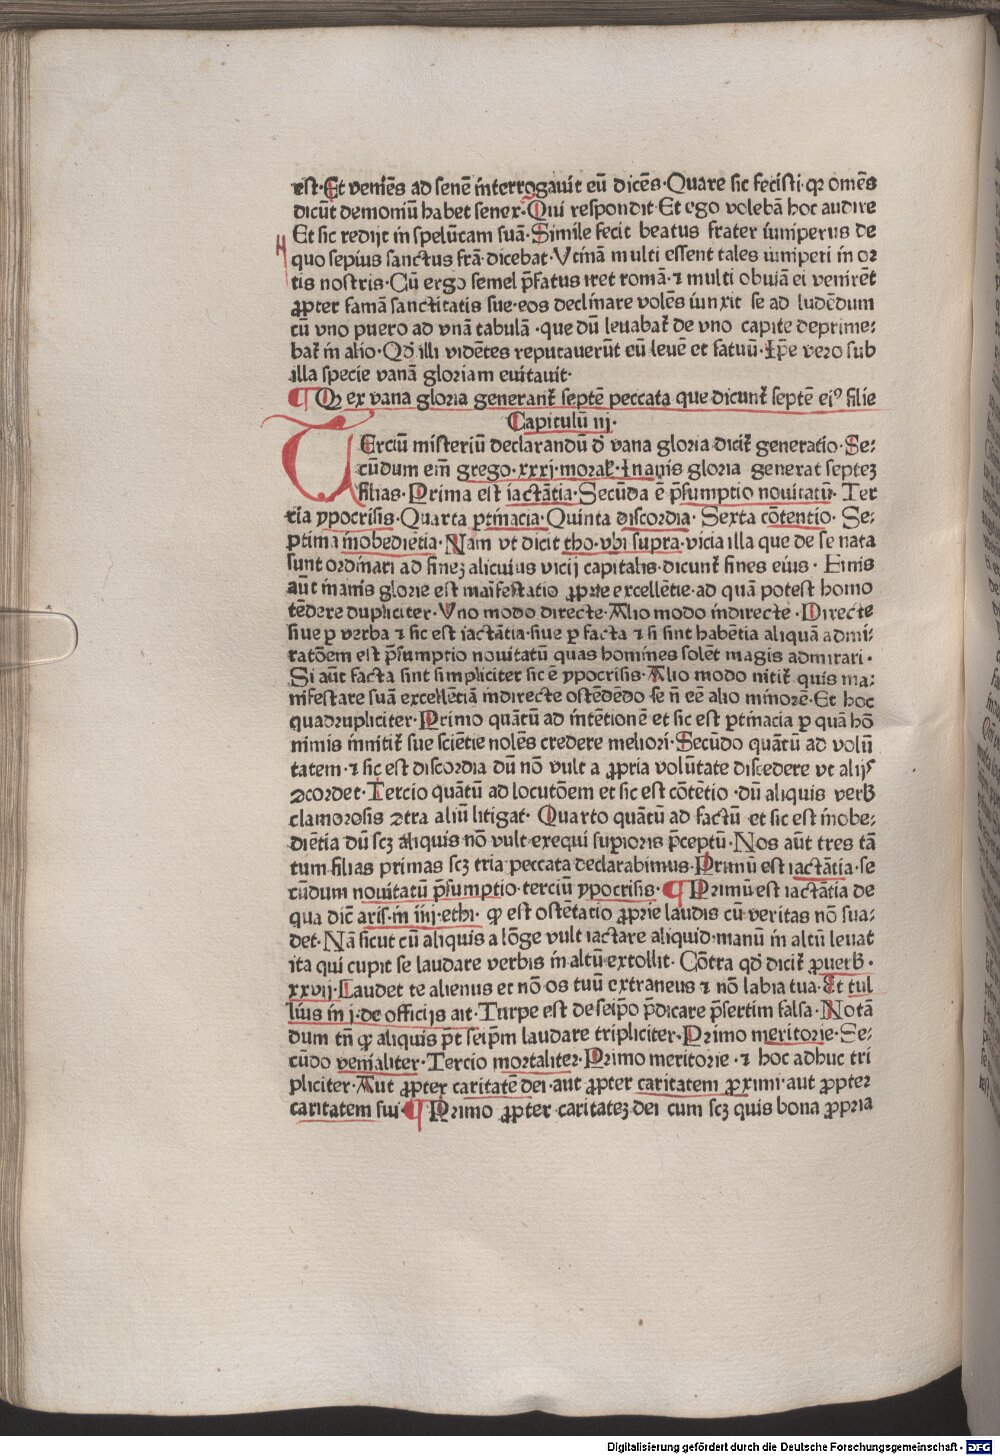 est·Et veniēs ad senē interrogauit eū dicēs·Quare sic fecisti·qꝛ omēs
dicūt demoniū habet senex·Qui respondit Et ego volebā hoc audire
Et sic redijt in speluncam suā·Simile fecit beatus frater iuniperus de
quo sepius sanctus frā·dicebat·Vtinā multi essent tales iuniperi in oꝛ
tis nostris·Cū ergo semel p̄fatus iret romā·⁊ multi obuiā ei venirēt
ꝓpter famā sanctitatis sue·eos declinare volēs iunxit se ad ludēdum
cū vno puero ad vnā tabulā·que dū leuabat̄ de vno capite deprime:
bat̄ in alio·Qd̄ illi vidētes reputauerūt eū leuē et fatuū·Ip̄e vero sub
illa specie vanā gloriam euitauit·
¶ Qꝛ ex vana gloria generant̄ septē peccata que dicunt̄ septē eiꝰ filie
Capitulū iij·
TErciū misteriū declarandū d̄ vana gloria dicit̄ generatio·Se:
cūdum em̄ grego·xxxj·moral̄·Inanis gloria generat septeꝫ
filias·Prima est iactātia·Secūda ē p̄sumptio nouitatū·Ter
tia ypocrisis·Quarta ꝑtinacia·Quinta discordia·Sexta cōtentio·Se:
ptima inobediētia·Nam vt dicit tho·vbi supra·vicia illa que de se nata
sunt ordinari ad fineꝫ alicuius vicij capitalis·dicunt̄ fines eius·Finis
aūt inanis glorie est manifestatio ꝓprie excellētie·ad quā potest homo
tēdere dupliciter·Vno modo directe·Alio modo indirecte·Directe
siue ꝑ verba ⁊ sic est iactātia·siue ꝑ facta ⁊ si sint habētia aliquā admi:
ratōem est p̄sumptio nouitatū quas homines solēt magis admirari·
Si aūt facta sint simpliciter sic ē ypocrisis·Alio modo nitit̄ quis ma:
nifestare suā excellētiā indirecte ostēdēdo se n̄ eē alio minorē·Et hoc
quadrupliciter·Primo quātū ad intētionē et sic est ꝑtinacia ꝑ quā hō
nimis innitit̄ sue sciētie nolēs credere meliori·Secūdo quātū ad volū
tatem·⁊ sic est discordia dū nō vult a ꝓpria volūtate discedere vt alijs
ꝯcordet·Tercio quātū ad locutōem et sic est cōtētio·dū aliquis verb̄
clamorosis ꝯtra aliū litigat·Quarto quātū ad factū et sic est inobe:
diētia dū scꝫ aliquis nō vult exequi supioris p̄ceptū·Nos aūt tres tā
tum filias primas scꝫ tria peccata declarabimus·Primū est iactātia·se
cūdum nouitatū p̄sumptio·terciū ypocrisis·¶ Primū est iactātia de
qua dic̄ aris·in iiij·ethi·ꝙ est ostētatio ꝓprie laudis cū veritas nō sua:
det·Nā sicut cū aliquis a lōge vult iactare aliquid·manū in altū leuat
ita qui cupit se laudare verbis in altū extollit·Cōtra qd̄ dicit̄ ꝓuerb̄·
xxvij·Laudet te alienus et nō os tuū extraneus ⁊ nō labia tua·Et tul
lius in j·de officijs ait·Turpe est de seip̄o p̄dicare p̄sertim falsa·Notā
dum tn̄ ꝙ aliquis p̄t seip̄m laudare tripliciter·Primo meritorie·Se:
cūdo venialiter·Tercio mortaliter·Primo meritorie·⁊ hoc adhuc tri
pliciter·Aut ꝓpter caritatē dei·aut ꝓpter caritatem ꝓximi·aut ꝓpter
caritatem sui·¶ Primo ꝓpter caritateꝫ dei cum scꝫ quis bona ꝓpria
Digitalisierung gefördert durch die Deutsche Forschungsgemeinschaft - DFG